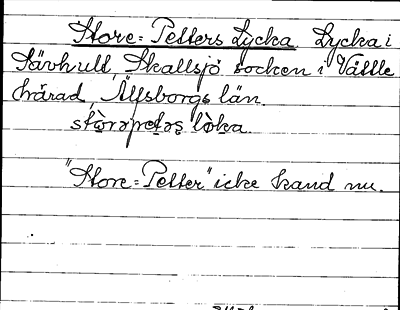 Store-Petters Lycka. Lycka i
Sävhult, Skallsjö socken i Vättle
härad, Älfsborgs län.
"Store-Petter" icke känd nu.